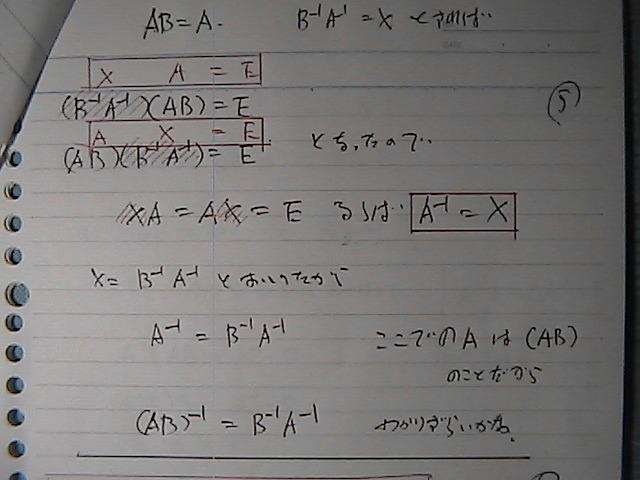 AB = A. B⁻¹A⁻¹ = X とすれば‥
X A = E
(B⁻¹A⁻¹)(AB) = E
⑤
A X = E
(AB)(B⁻¹A⁻¹) = E となったので‥
XA = AX = E ならば‥ A⁻¹ = X
X = B⁻¹A⁻¹ とおいてたから
A⁻¹ = B⁻¹A⁻¹ ここでのAは(AB)
のことだから
(AB)⁻¹ = B⁻¹A⁻¹ わかりずらいかな。